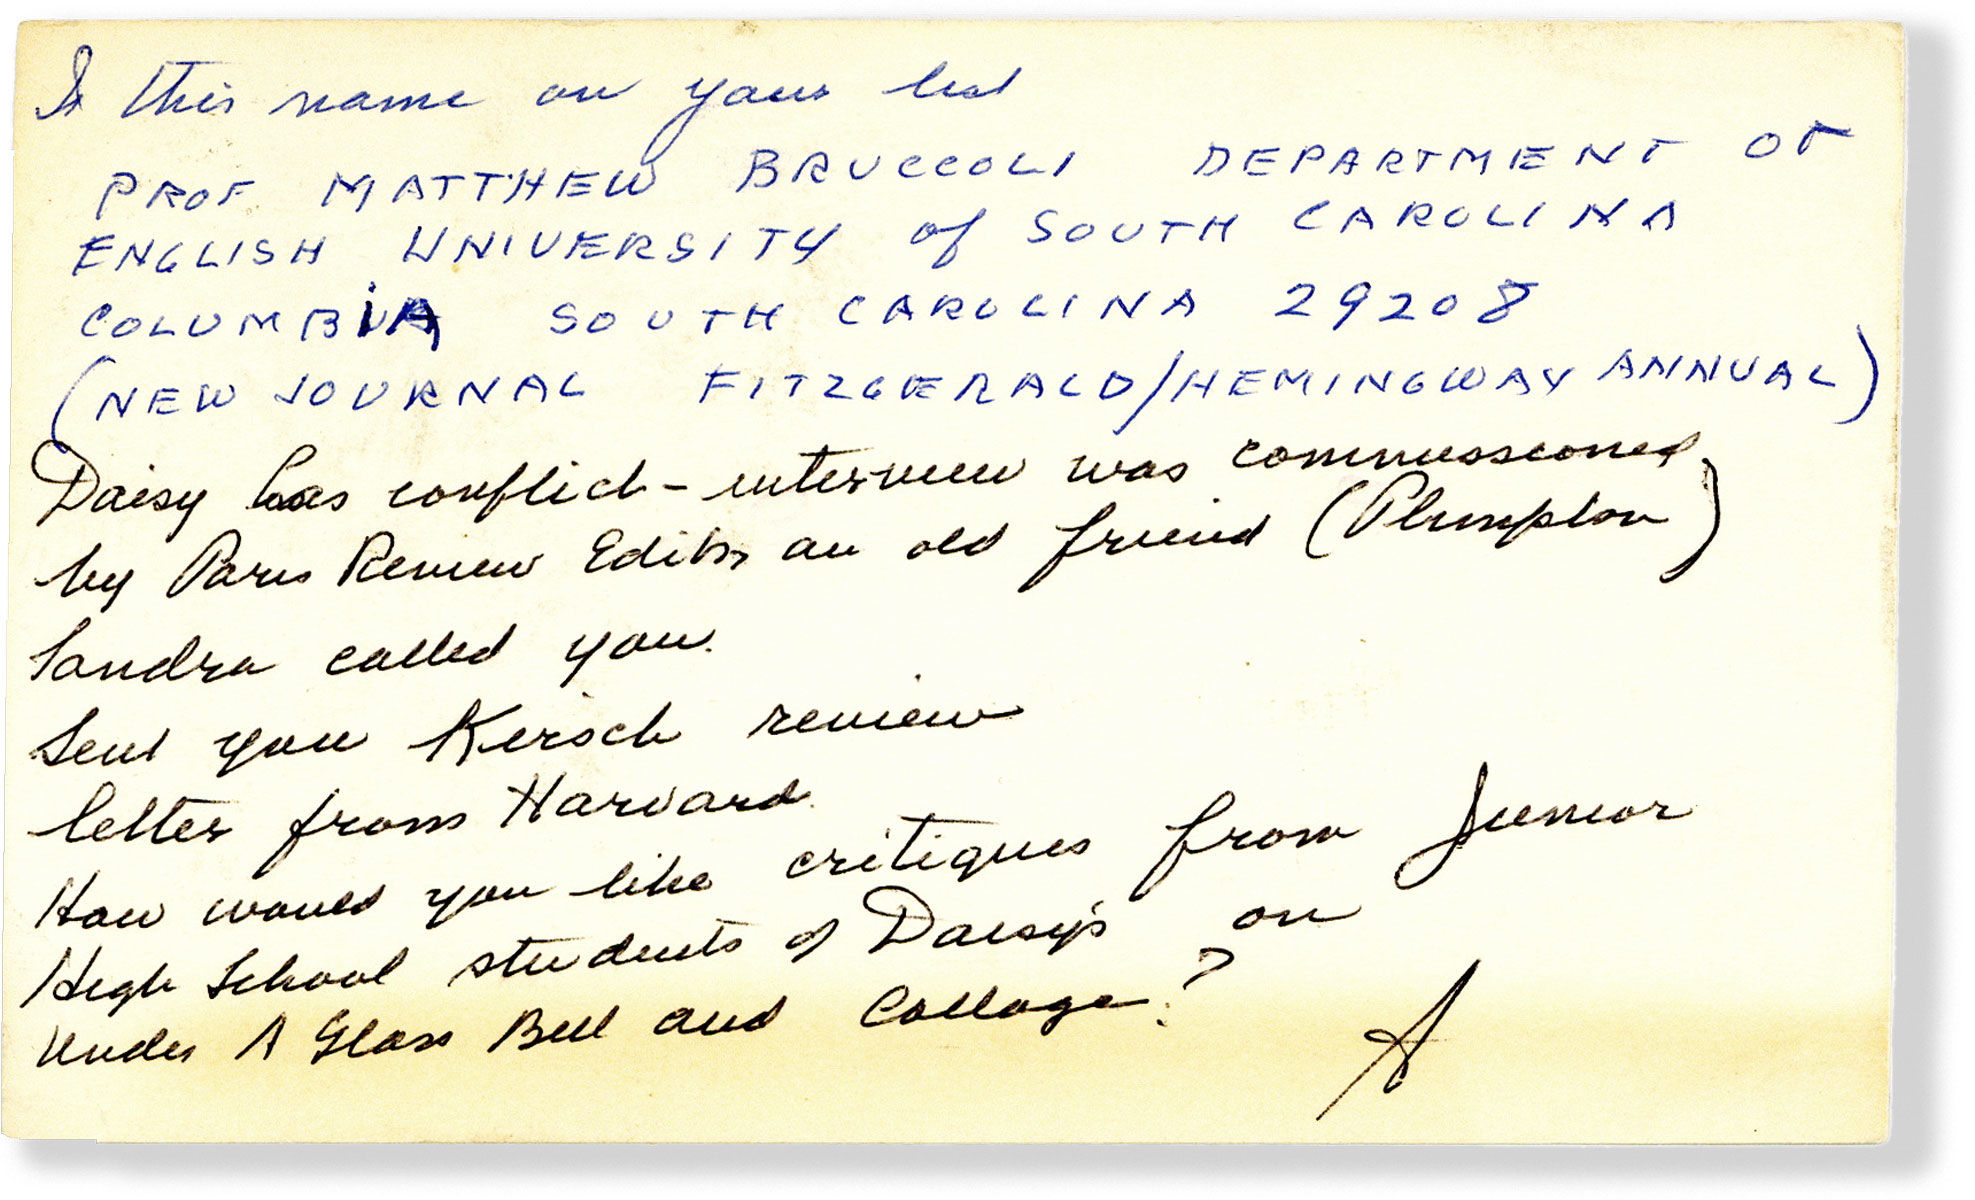 Is this name on your list
PROF MATTHEW BRUCCOLI DEPARTMENT OF
ENGLISH UNIVERSITY of SOUTH CAROLINA
COLUMBIA SOUTH CAROLINA 29208
(NEW JOURNAL FITZGERALD/HEMINGWAY ANNUAL)
Daisy has conflict - interview was commissioned
by Paris Review Editor, an old friend (Plimpton)
Sandra called you.
Sent you Kersch review
letter from Harvard.
How would you like critiques from Junior
High School students of Daisy's on
Under A Glass Bell and Collage?
A